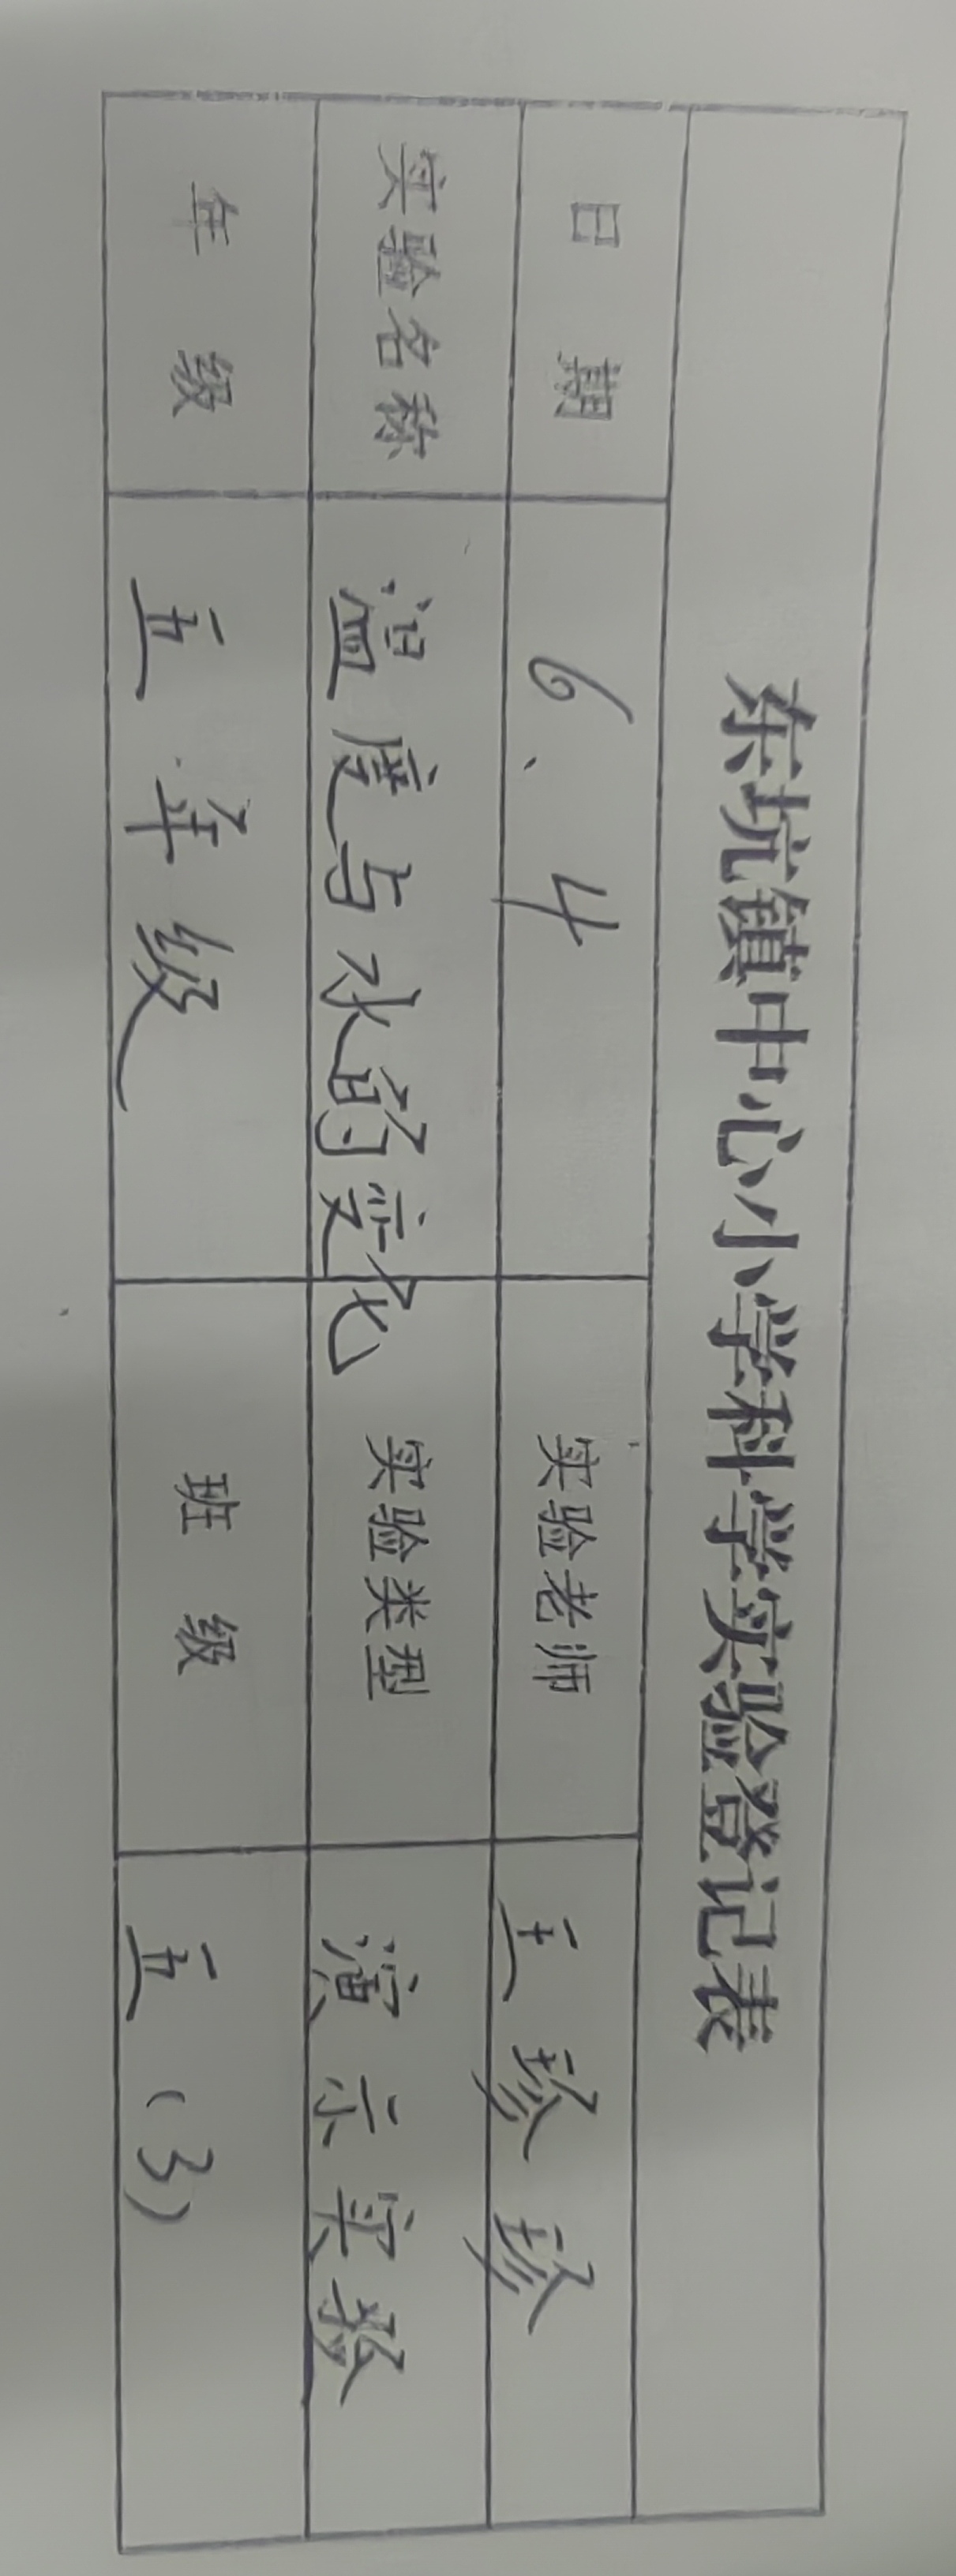 东坑镇中心小学科学实验登记表
日期 6、4 实验老师 王珍珍
实验名称 温度与水的变化 实验类型 演示实验
年级 五年级 班级 五(3)